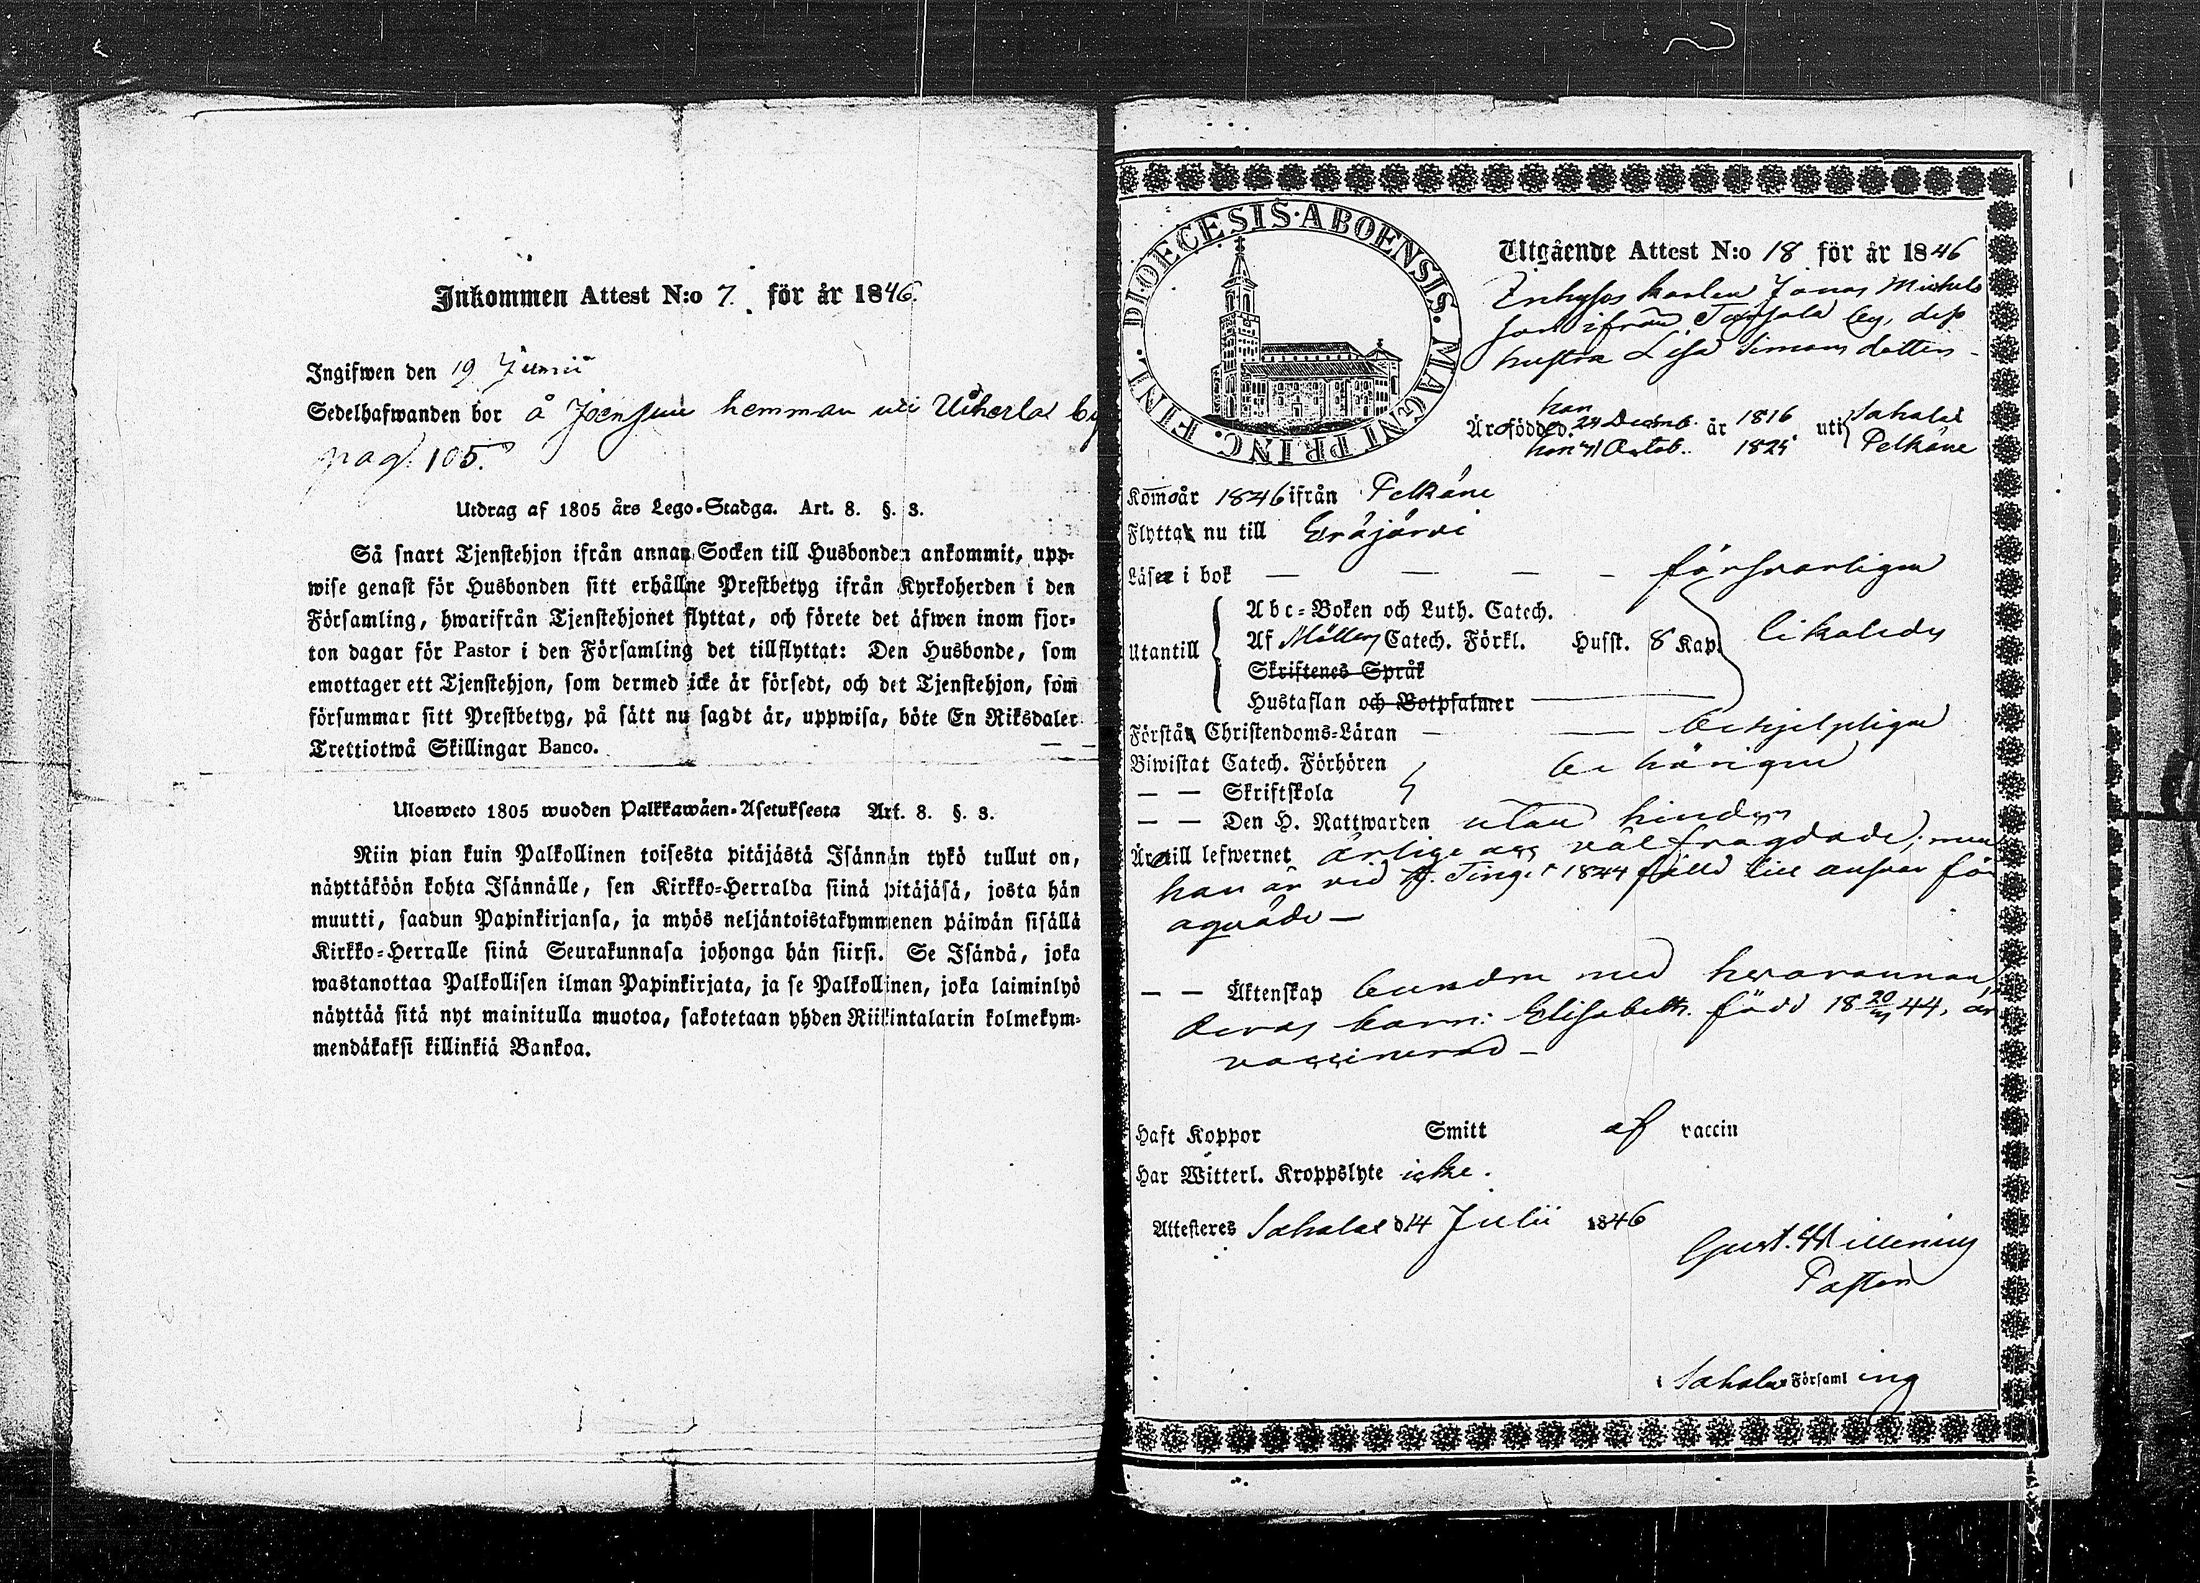 Inkommen Attest N:o 7. för år 1846.
Ingifwen den 19 Junii
Sedelhafwanden bor å Joensuu hemman uti Uiherla by
pag. 105.
Utdrag af 1805 års Lego-Stadga. Art. 8. §. 3.
Så snart Tjenstehjon ifrån annan Socken till Husbonden ankommit, upp-
wise genast för Husbonden sitt erhållne Prestbetyg ifrån Kyrkoherden i den
Församling, hwarifrån Tjenstehjonet flyttat, och förete det äfwen inom fjor-
ton dagar för Pastor i den Församling det tillflyttat: Den Husbonde, som
emottager ett Tjenstehjon, som dermed icke är försedt, och det Tjenstehjon, som
försummar sitt Prestbetyg, på sätt nu sagdt är, uppwisa, böte En Riksdaler
Trettiotwå Skillingar Banco.
Ulosweto 1805 wuoden Palkkawäen-Asetuksesta Art. 8. §. 3.
Niin pian kuin Palkollinen toisesta pitäjästä Isännän tykö tullut on,
näyttäköön kohta Isännälle, sen Kirkko-Herralda siinä pitäjäsä, josta hän
muutti, saadun Papinkirjansa, ja myös neljäntoistakymmenen päiwän sisällä
Kirkko-Herralle siinä Seurakunnasa johonga hän siirsi. Se Isändä, joka
wastanottaa Palkollisen ilman Papinkirjata, ja se Palkollinen, joka laiminlyö
näyttää sitä nyt mainitulla muotoa, sakotetaan yhden Riikintalarin kolmekym-
mendäkaksi killinkiä Bankoa.
DIOECESIS·ABOENSIS. MAGNI PRINC. FINL.
Utgående Attest N:o 18 för år 1846
Inhyses karlen Jonas Michels
son ifrån by, dess
hustru Lisa Simons dotter
han
Äro födde d. 24 Decemb. år 1816 uti Sahalax
hon 4 Octob. 1825 Pelkäne
Komo år 1846 ifrån Pelkäne
Flytta nu till Eräjärvi
Läser i bok — — — — försvarligen
Abc-Boken och Luth. Catech.
Utantill Af Möllers Catech. Förkl. Husst. 8 Kap. likaledes
Skriftenes Språk
Hustaflan och Botpsalmer
Förstår Christendoms-Läran — — behjelpligen
Biwistat Catech. Förhören behörigen
— — Skriftskola
— — Den H. Nattwarden utan hinder
Äro till lefwernet ärlige och väl fragdade; men
han är vid H. Tinget 1844 fälld till answar för
åquäde —
— — Äktenskap bundne med hvarannan,
deras barn: Elisabeth född 18 44, är
vaccinerad —
Haft Koppor Smitt af vaccin
Har Witterl. Kroppslyte icke.
Attesteres Sahalax d 14 Julii 1846
Gust.
Pastor
i Sahalax Församling